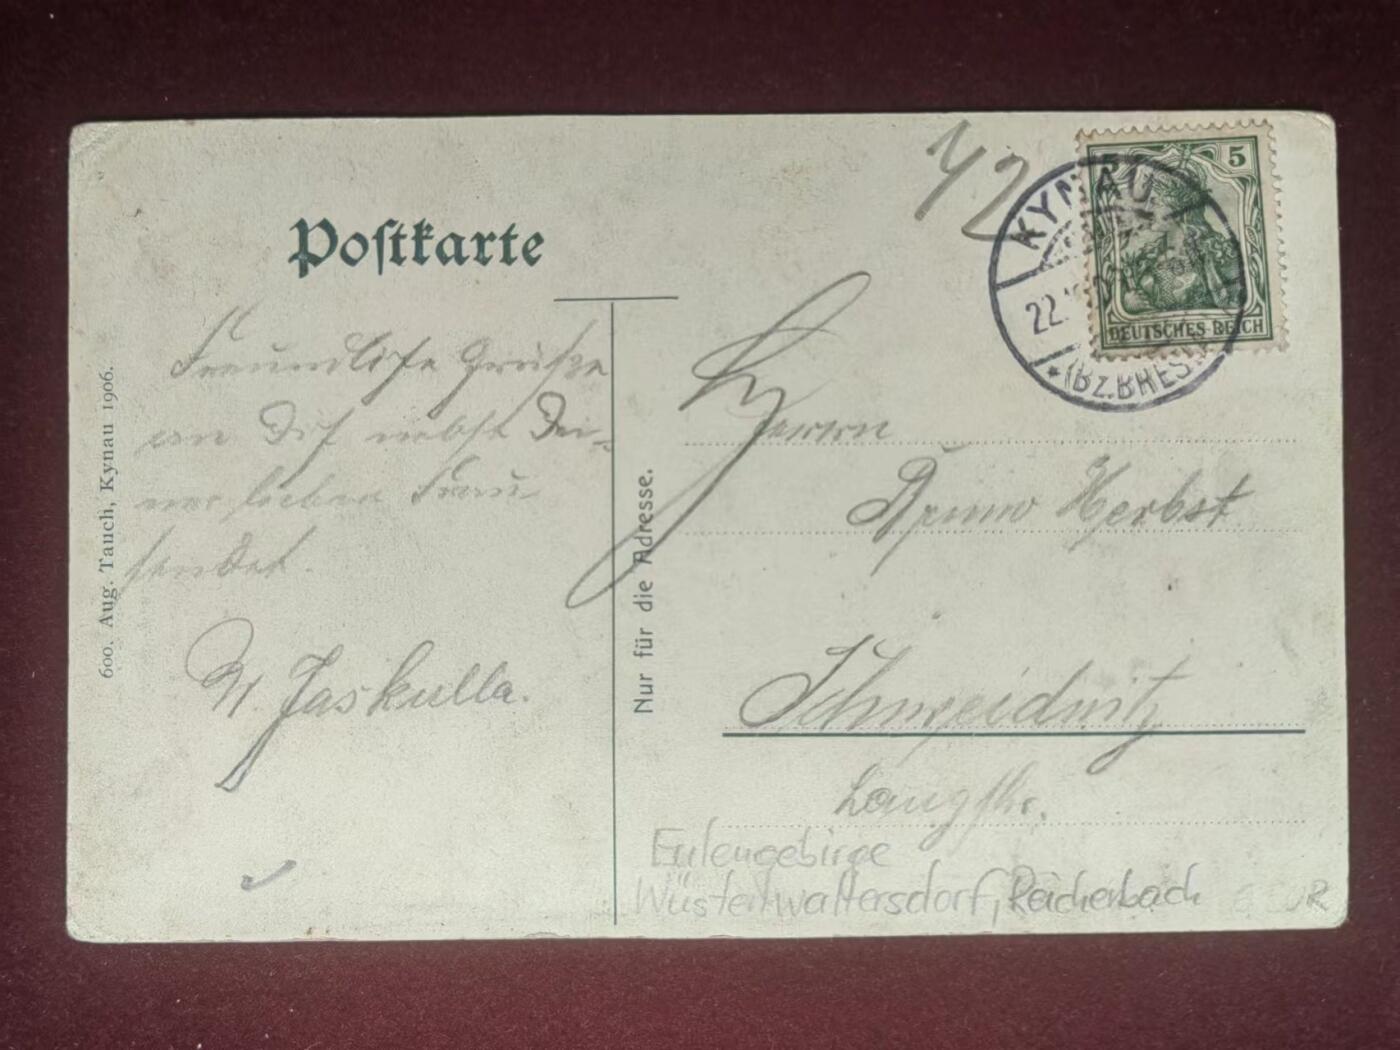 Postkarte
42
KYNAU
22.
(BZ.BRESL
5 5
DEUTSCHES REICH
Freundliche Grüße
an Dich nebst Dei-
ner lieben Frau
sendet.
M. Jaskulla.
600. Aug. Tauch, Kynau 1906.
Nur für die Adresse.
Herrn
Bruno Herbst
Schweidnitz
Langstr.
Eulengebirge
Wüstenwaltersdorf, Reichenbach
6 EUR